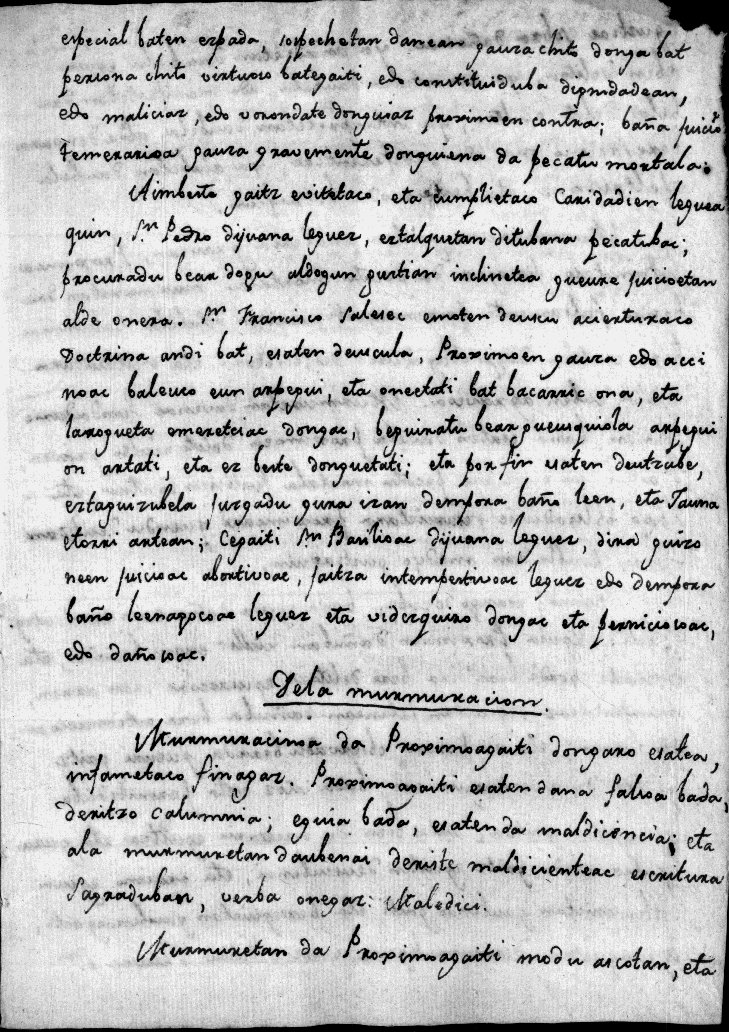 especial baten ezpada, sospechetan danean gaura chito donga bat
persona chito virtuoso bategaiti, edo constituiduba dignidadean,
edo maliciaz, edo vorondate donguiaz proximoen contra; baña juicio
temerarioa gaura gravemente donguiena da pecatu mortala.
Aimbeste gaitz evitetaco, eta cumplietaco Caridadien leguea
quin, Sn Pedro diyuana leguez, estalquetan ditubana pecatubac;
procuradu bear dogu aldogun guztian inclinetea gueure juicioetan
alde onera. Sn Francisco Salesec emoten deuscu acierturaco
Doctrina andi bat, esaten deuscula, Proximoen gaura edo acci
noac baleuco eun arpegui, eta onectati bat bacarric ona, eta
larogueta emeretciac dongac, beguiratu bear gueusquiola arpegui
on artati, eta ez beste donguetati; eta por fin esaten deutzube,
eztaguizubela juzgadu gura izan dempora baño leen, eta Jauna
etorri artean; Cegaiti Sn Basilioac diyuana leguez, dira guizo
neen juicioac abortivoac, jaitza intempestivoac leguez edo dempora
baño leenagocoac leguez eta viderquizo dongac eta perniciosoac,
edo dañosoac.
Dela murmuracion
Murmuracinoa da Proximoagaiti dongaro esatea,
infametaco finagaz. Proximoagaiti esaten dana falsoa bada,
deritzo calumnia; eguia bada, esaten da maldicencia; eta
ala murmuretan daubenai deriste maldicienteac escritura
Sagraduban, verba onegaz: Maledici.
Murmuretan da Proximoagaiti modu ascotan, eta